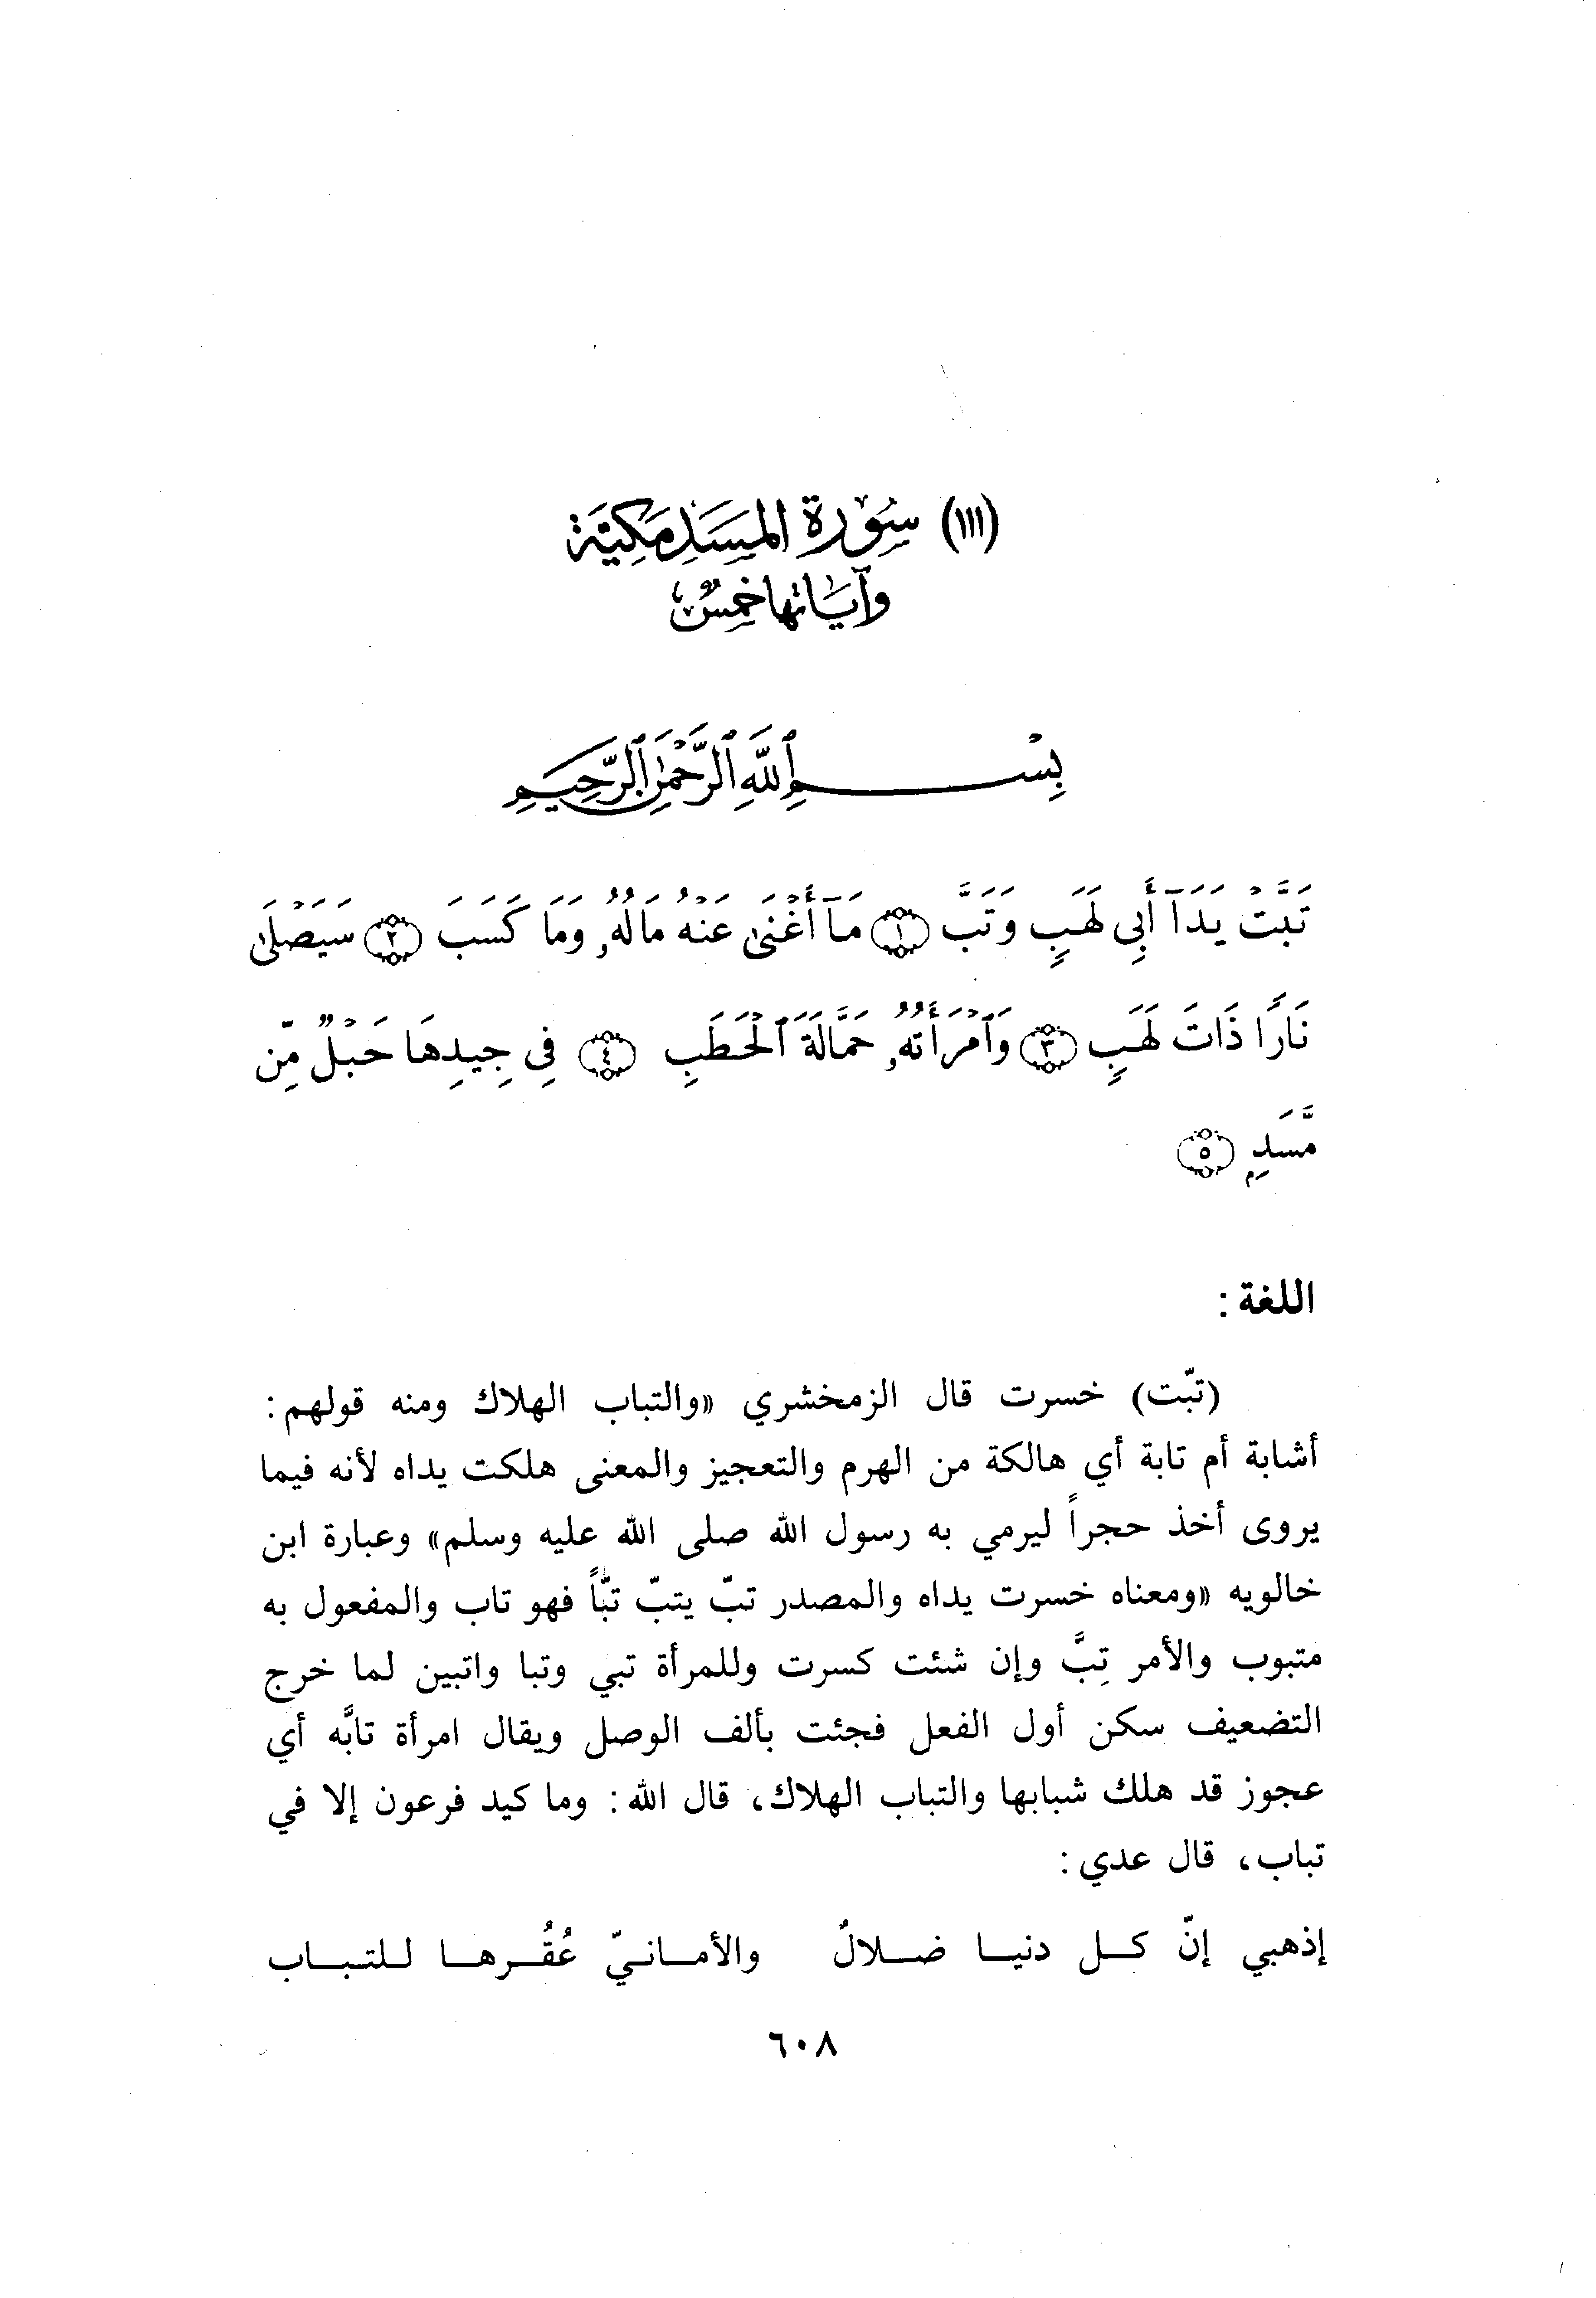 (١١١) سُورَةُ المَسَدِ مَكِيَّة
وَآيَاتُهَا خَمْسٌ
بِسْمِ ٱللَّهِ ٱلرَّحْمَٰنِ ٱلرَّحِيمِ
تَبَّتْ يَدَآ أَبِي لَهَبٍ وَتَبَّ ﴿١﴾ مَآ أَغْنَىٰ عَنْهُ مَالُهُۥ وَمَا كَسَبَ ﴿٢﴾ سَيَصْلَىٰ
نَارًا ذَاتَ لَهَبٍ ﴿٣﴾ وَٱمْرَأَتُهُۥ حَمَّالَةَ ٱلْحَطَبِ ﴿٤﴾ فِي جِيدِهَا حَبْلٌ مِّن
مَّسَدٍ ﴿٥﴾
اللغة :
(تبّت) خسرت قال الزمخشري «والتباب الهلاك ومنه قولهم:
أشابة أم تابة أي هالكة من الهرم والتعجيز والمعنى هلكت يداه لأنه فيما
يروى أخذ حجراً ليرمي به رسول الله صلى الله عليه وسلم» وعبارة ابن
خالويه «ومعناه خسرت يداه والمصدر تبّ يتبّ تبّاً فهو تاب والمفعول به
متبوب والأمر تِبَّ وإن شئت كسرت وللمرأة تبي وتبا واتببن لما خرج
التضعيف سكن أول الفعل فجئت بألف الوصل ويقال امرأة تابَّه أي
عجوز قد هلك شبابها والتباب الهلاك، قال الله: وما كيد فرعون إلا في
تباب، قال عدي:
إذهبي إنّ كل دنيا ضلالٌ والأمانيّ عُقُرها للتباب
٦٠٨